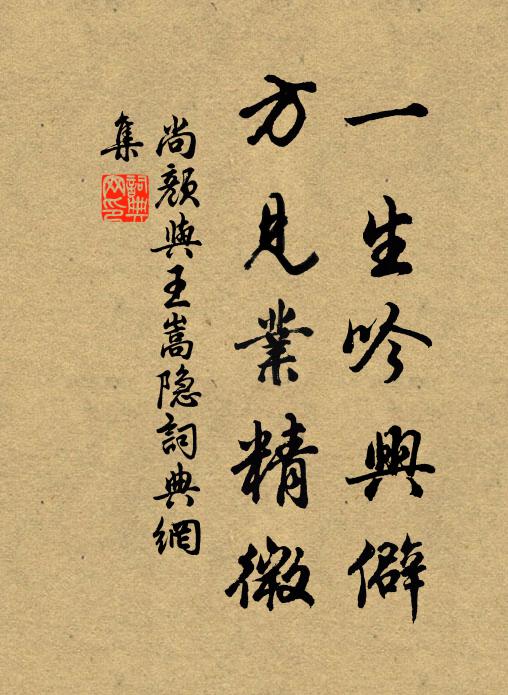 一生吟興僻
方見業精微
尚顏與王嵩隐詞典網
集
詞典網印